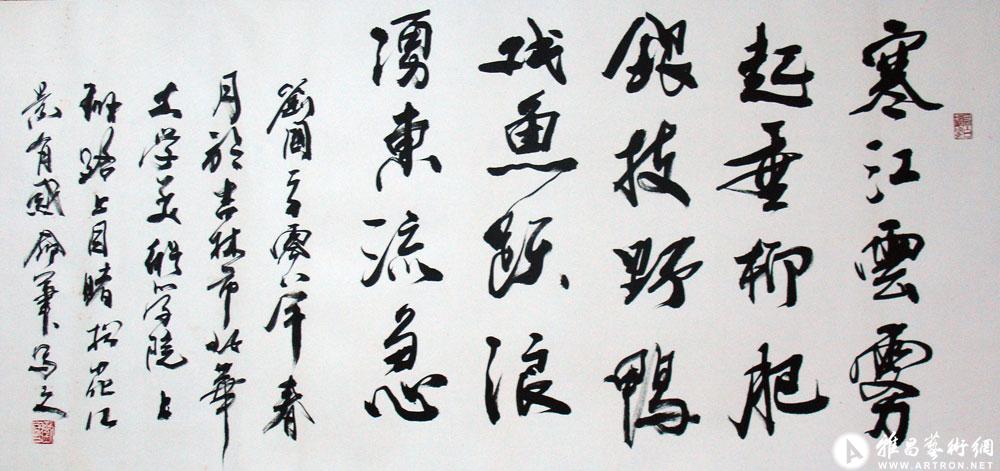 寒江雲雾
起垂柳肥
銀枝野鴨
戏魚跃浪
湧東流急
零八年春
月於吉林市北華
大学美術学院上
班路上目睹松花江
景有感命筆写之
雅昌藝術網
WWW.ARTRON.NET